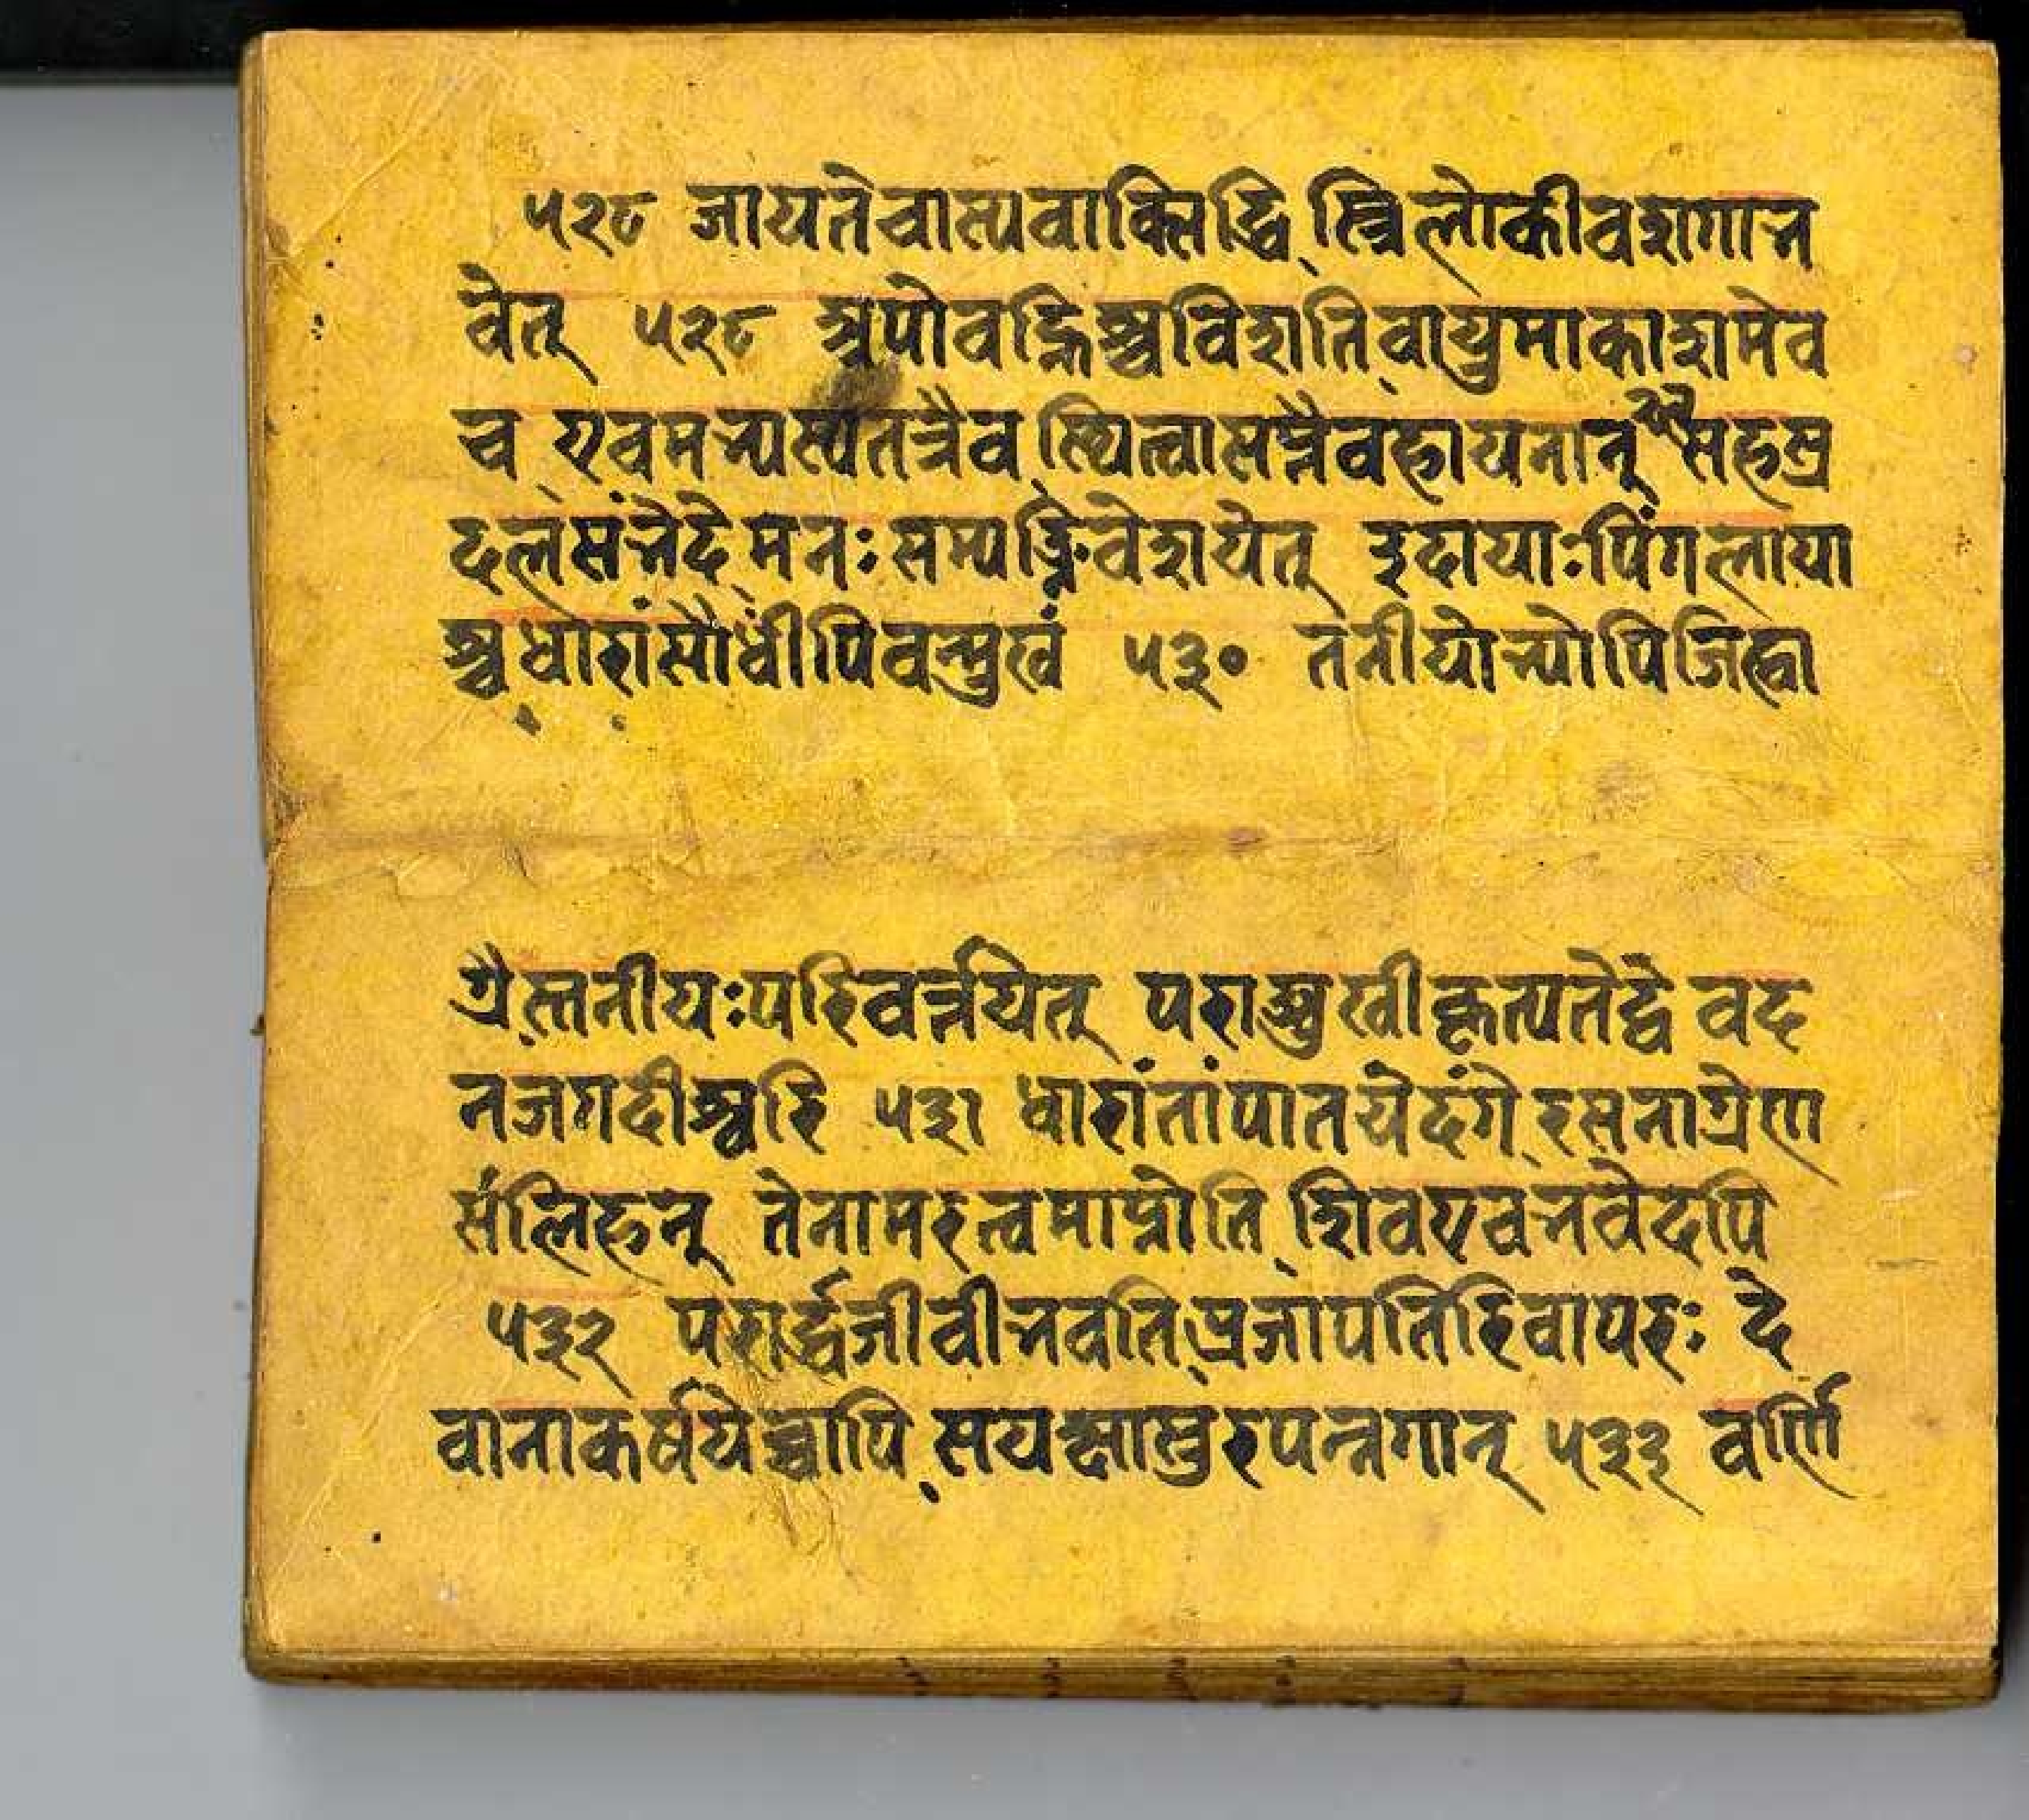 ५२८ जायतेचास्यवाक्सिद्धि स्त्रिलोकीवशगाभ
वेत् ५२९ अपोवह्निञ्चविशति वायुमाकाशमेव
च एवमभ्यस्यतत्रैव स्थित्वासत्रैवहायनान् सहस्र
दलसंज्ञेदे मनःसम्यङ्निवेशयेत् इदायाःपिंगलाया
श्चधारांसौधींपिवन्मुखं ५३० तनीयोन्योपिजिह्वा
ग्रैस्तनीयःपरिवर्त्तयेत् पराङ्मुखीकृत्यतेद्वे वद
नजगदीश्वरि ५३१ धारांतांपातयेदंगे रसनाग्रेण
संलिहन् तेनामरत्वमाप्नोति शिवएवभवेदपि
५३२ परार्द्धजीवीभवति प्रजापतिरिवापरः दे
वानाकर्षयेच्चापि सयक्षासुरपन्नगान् ५३३ वर्णि